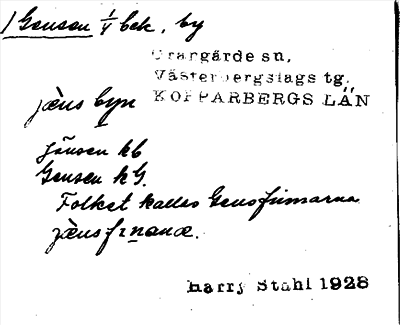 Gensen 1/V bek. by
Grangärde sn,
Västerbergslags tg.
KOPPARBERGS LÄN
jæns byn
Jönsen kb
Gensen kG.
Folket kallas Gensfinnarna
jænsfinanæ.
Harry Ståhl 1928